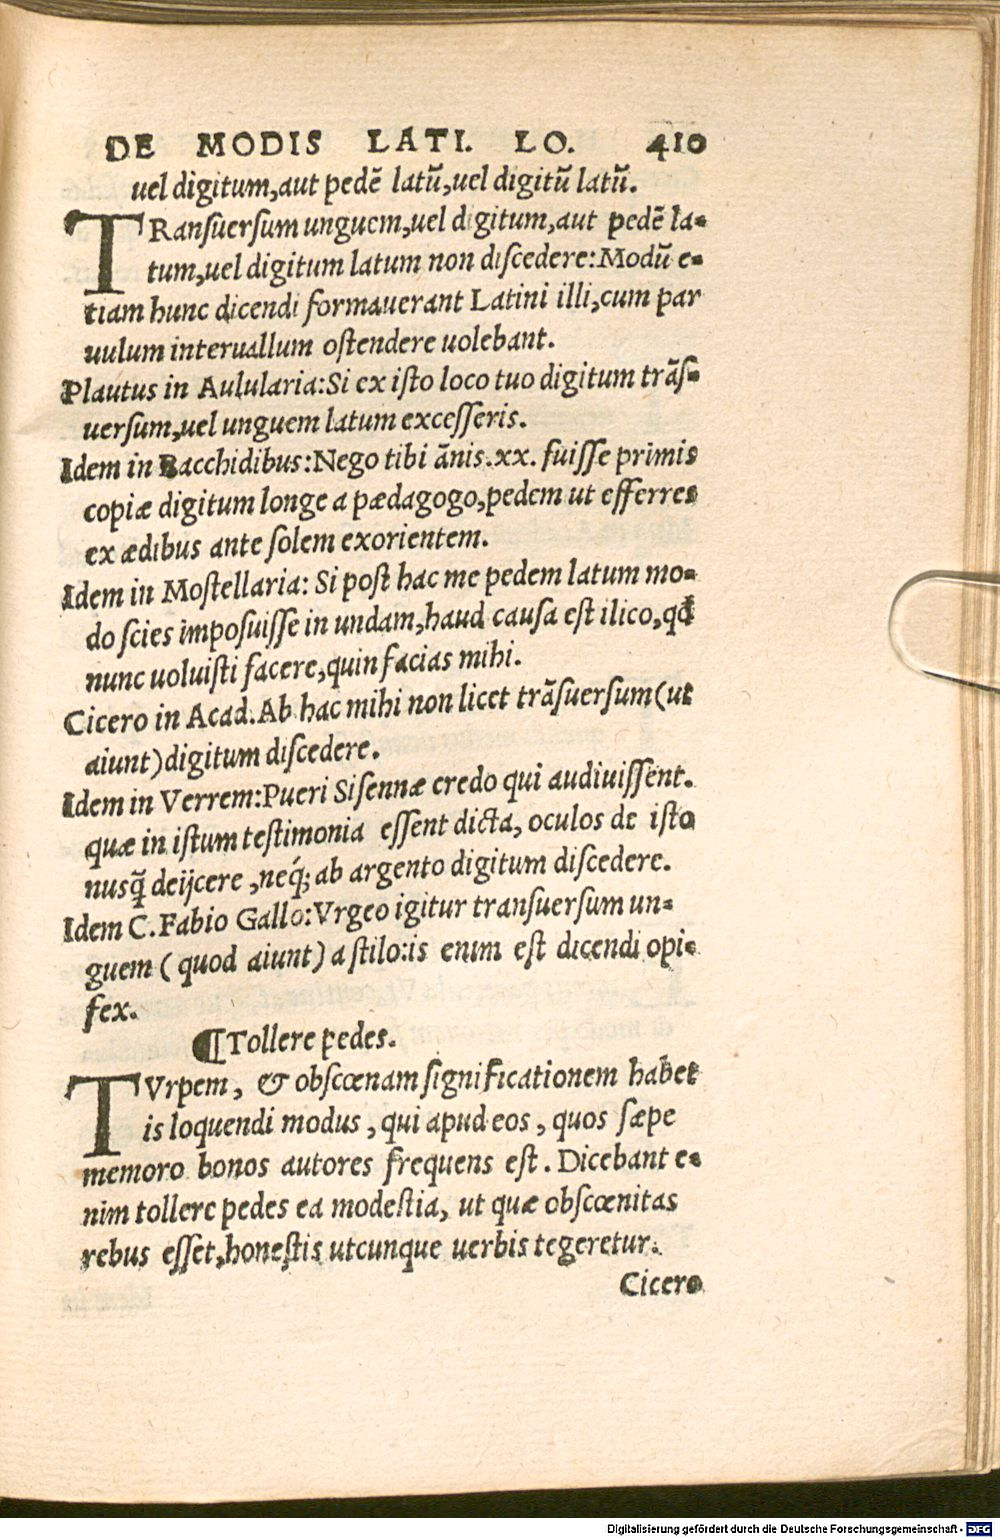 DE MODIS LATI. LO. 410
uel digitum,aut pedē latū,uel digitū latū.
TRanſuerſum unguem,uel digitum,aut pedē la-
tum,uel digitum latum non diſcedere:Modū e-
tiam hunc dicendi formauerant Latini illi,cum par
uulum interuallum oſtendere uolebant.
Plautus in Aulularia:Si ex iſto loco tuo digitum trāſ-
uerſum,uel unguem latum exceſſeris.
Idem in Bacchidibus:Nego tibi ānis.xx. fuiſſe primis
copiæ digitum longe a pædagogo,pedem ut efferres
ex ædibus ante ſolem exorientem.
Idem in Moſtellaria: Si poſt hac me pedem latum mo-
do ſcies impoſuiſſe in undam,haud cauſa eſt ilico,qđ
nunc uoluiſti facere,quin facias mihi.
Cicero in Acad.Ab hac mihi non licet trāſuerſum(ut
aiunt)digitum diſcedere.
Idem in Verrem:Pueri Siſennæ credo qui audiuiſſent.
quæ in iſtum teſtimonia eſſent dicta, oculos de iſto
nusq̃ deijcere ,neq́; ab argento digitum diſcedere.
Idem C.Fabio Gallo:Vrgeo igitur tranſuerſum un-
guem ( quod aiunt) a ſtilo:is enim eſt dicendi opi-
fex.
¶Tollere pedes.
TVrpem, & obſcœnam ſignificationem habet
is loquendi modus , qui apud eos , quos ſæpe
memoro bonos autores frequens eſt. Dicebant e-
nim tollere pedes ea modeſtia, ut quæ obſcœnitas
rebus eſſet,honeſtis utcunque uerbis tegeretur.
Cicero
Digitalisierung gefördert durch die Deutsche Forschungsgemeinschaft - DFG